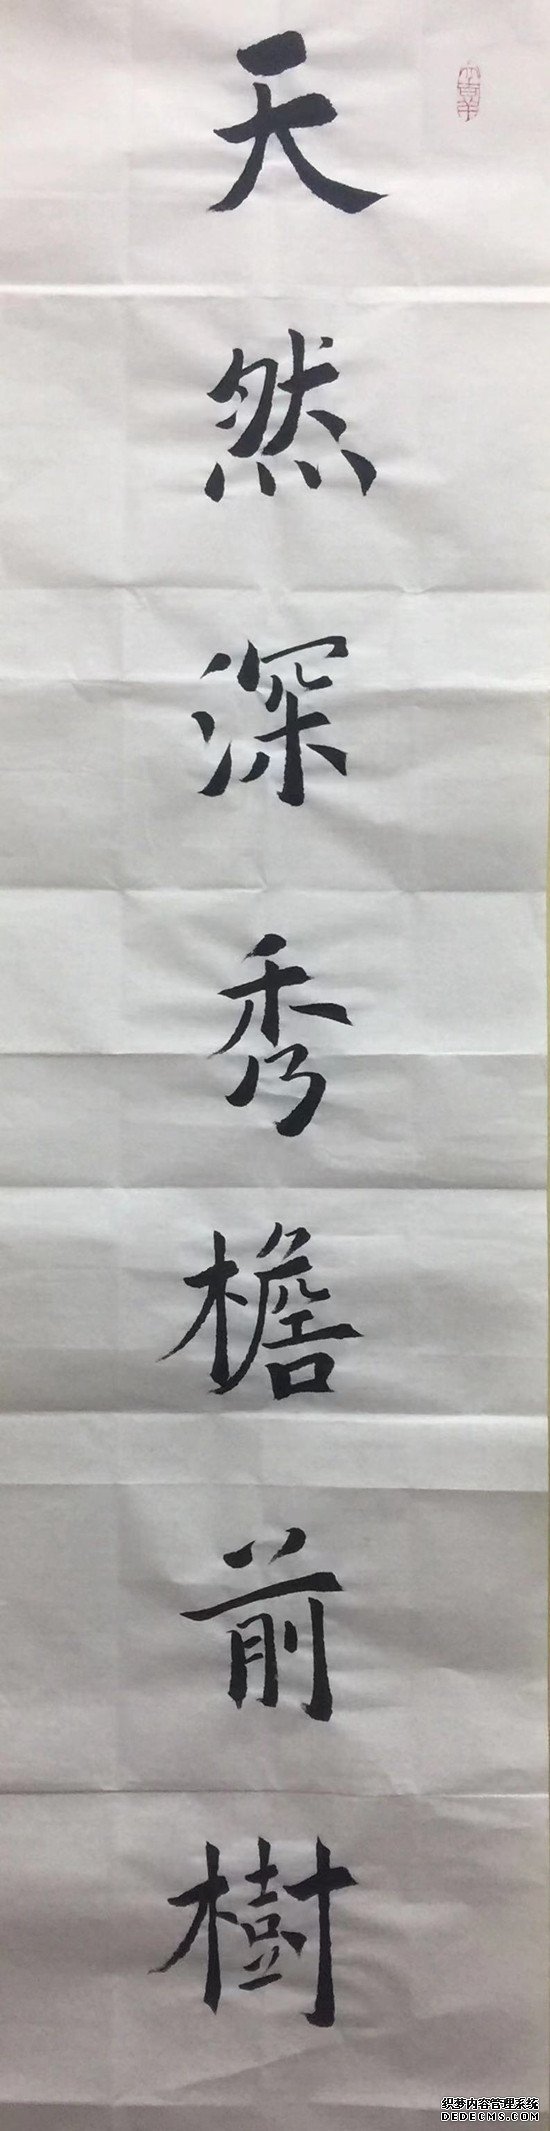 天然深秀檐前樹
织梦内容管理系统
DEDECMS.COM